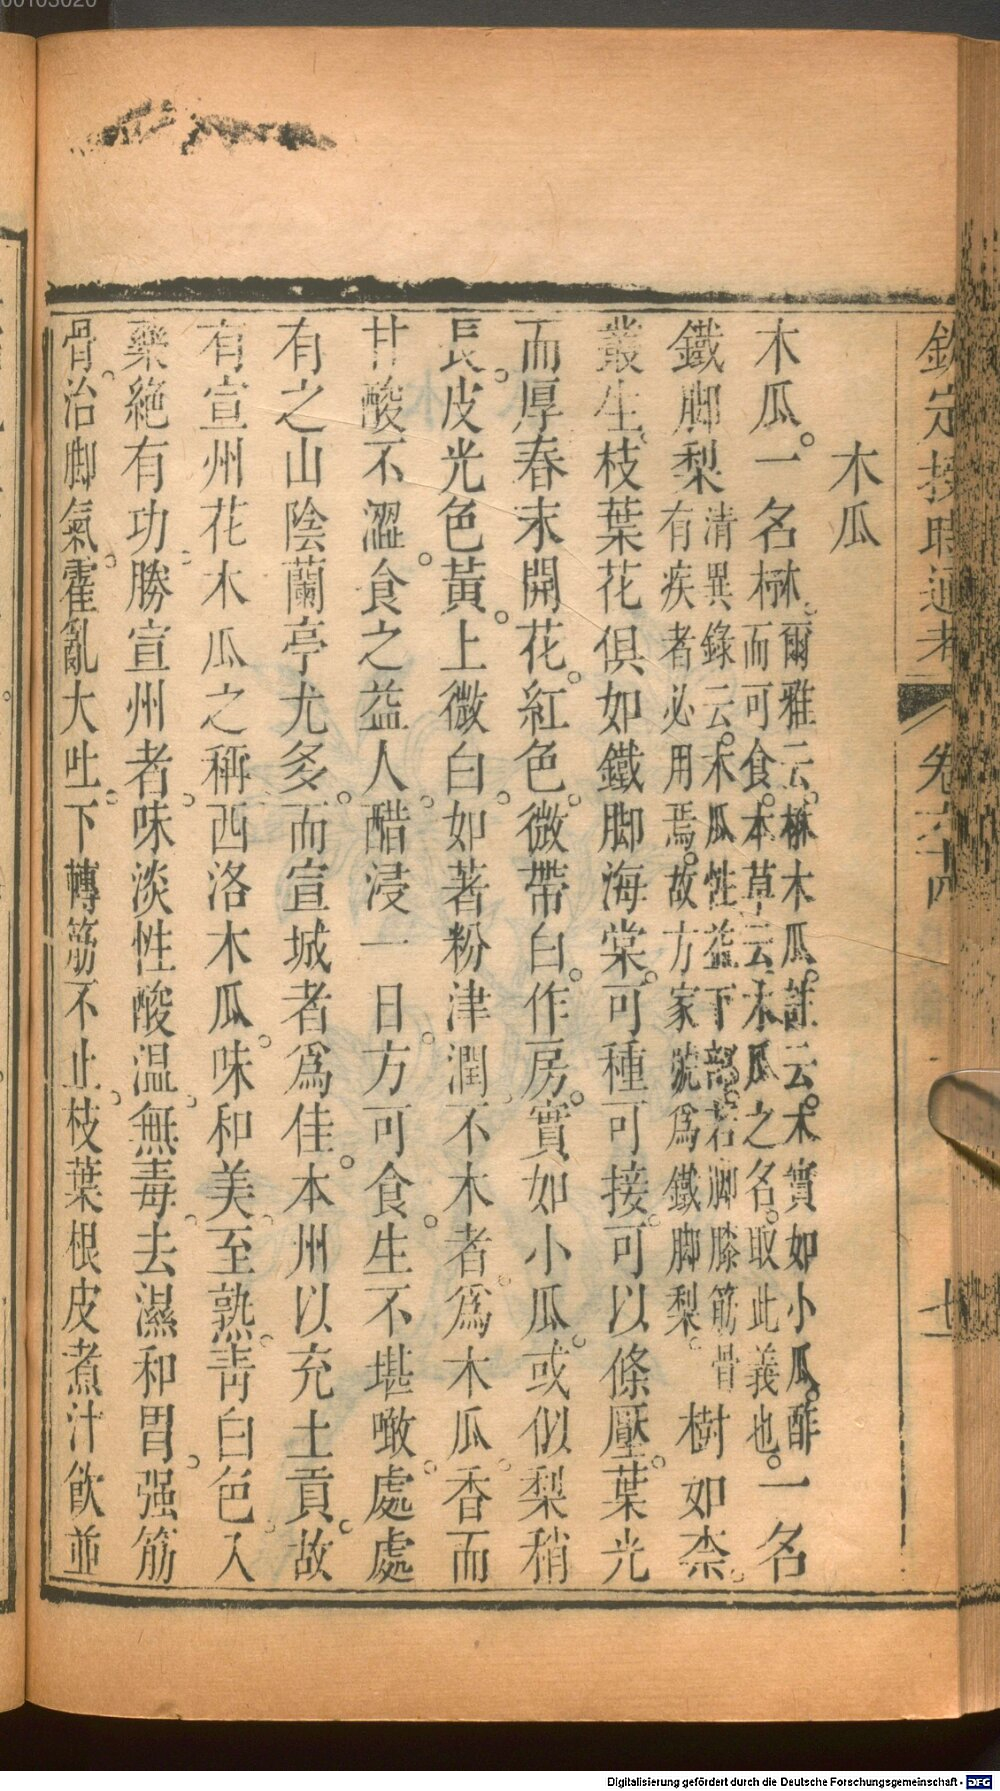 欽定授時通考 卷六十四 七
木瓜
木瓜。一名楙。爾雅云。楙木瓜。註云。木實如小瓜。酢
而可食。本草云。木瓜之名。取此義也。一名
鐵脚梨清異錄云。木瓜性益下部。若脚膝筋骨
有疾者必用焉。故方家號爲鐵脚梨。樹如柰。
叢生。枝葉花俱如鐵脚海棠。可種可接。可以條壓。葉光
而厚春末開花。紅色。微帶白。作房。實如小瓜。或似梨稍
長。皮光色黃。上微白。如著粉津潤。不木者。爲木瓜。香而
甘酸不澀。食之益人。醋浸一日。方可食。生不堪噉。處處
有之山陰蘭亭尤多。而宣城者爲佳。本州以充土貢。故
有宣州花木瓜之稱。西洛木瓜。味和美。至熟。靑白色。入
藥絕有功。勝宣州者。味淡性酸温。無毒。去濕和胃。强筋
骨。治脚氣。霍亂大吐。下轉筋不止。枝葉根皮煮汁飮並
00103020
Digitalisierung gefördert durch die Deutsche Forschungsgemeinschaft - DFG